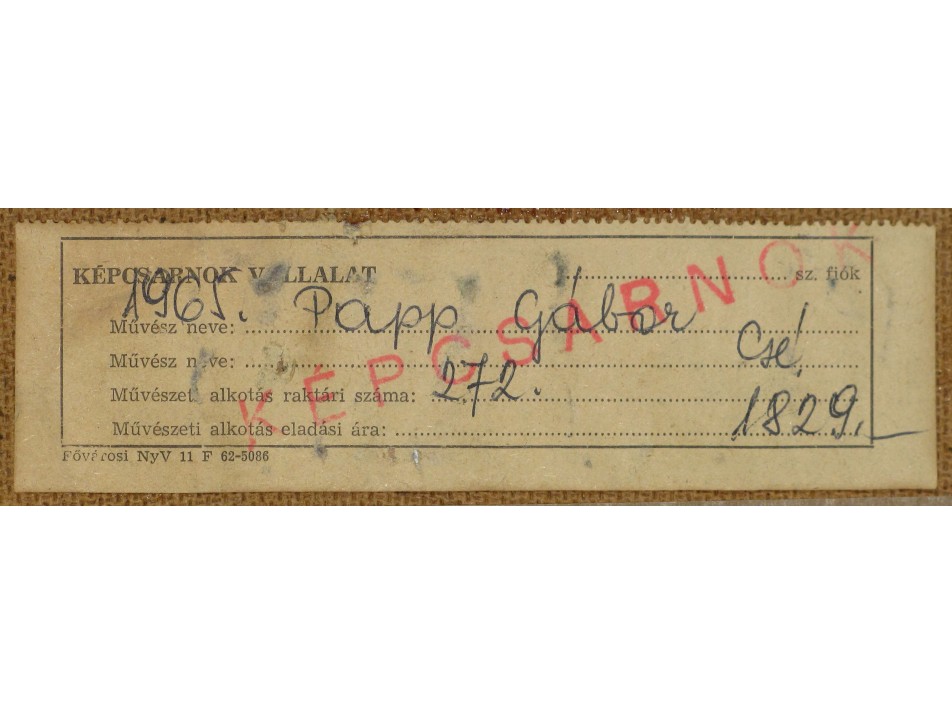 KÉPCSARNOK VÁLLALAT ........ sz. fiók
1965. Papp Gábor
Művész neve:
Csé!
Művész neve:
Művészeti alkotás raktári száma: 272.
Művészeti alkotás eladási ára: 1829.
Fővárosi NyV 11 F 62-5086
KÉPCSARNOK